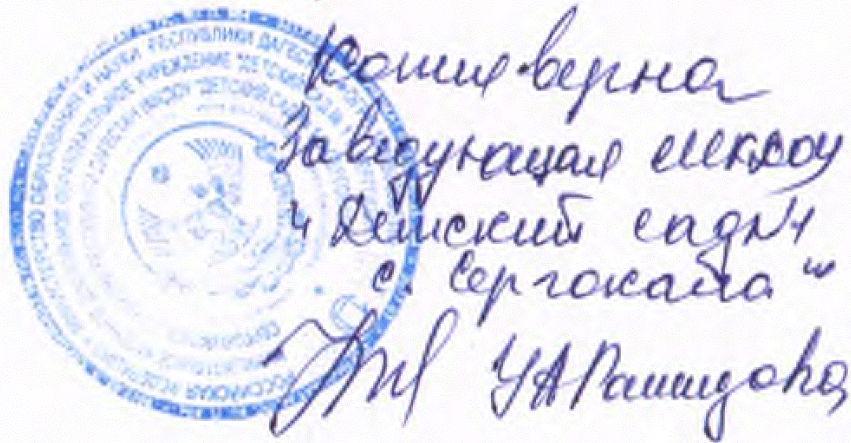 Копия верна
Заведующая МКДОУ
"Детский сад №1
с. Сергокала"
УАРашидова
МИНИСТЕРСТВО ОБРАЗОВАНИЯ И НАУКИ РЕСПУБЛИКИ ДАГЕСТАН
РОССИЙСКАЯ ФЕДЕРАЦИЯ
ОБРАЗОВАТЕЛЬНОЕ УЧРЕЖДЕНИЕ "ДЕТСКИЙ САД